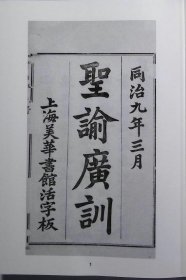 同治九年三月
聖諭廣訓
上海美華書館活字板
1